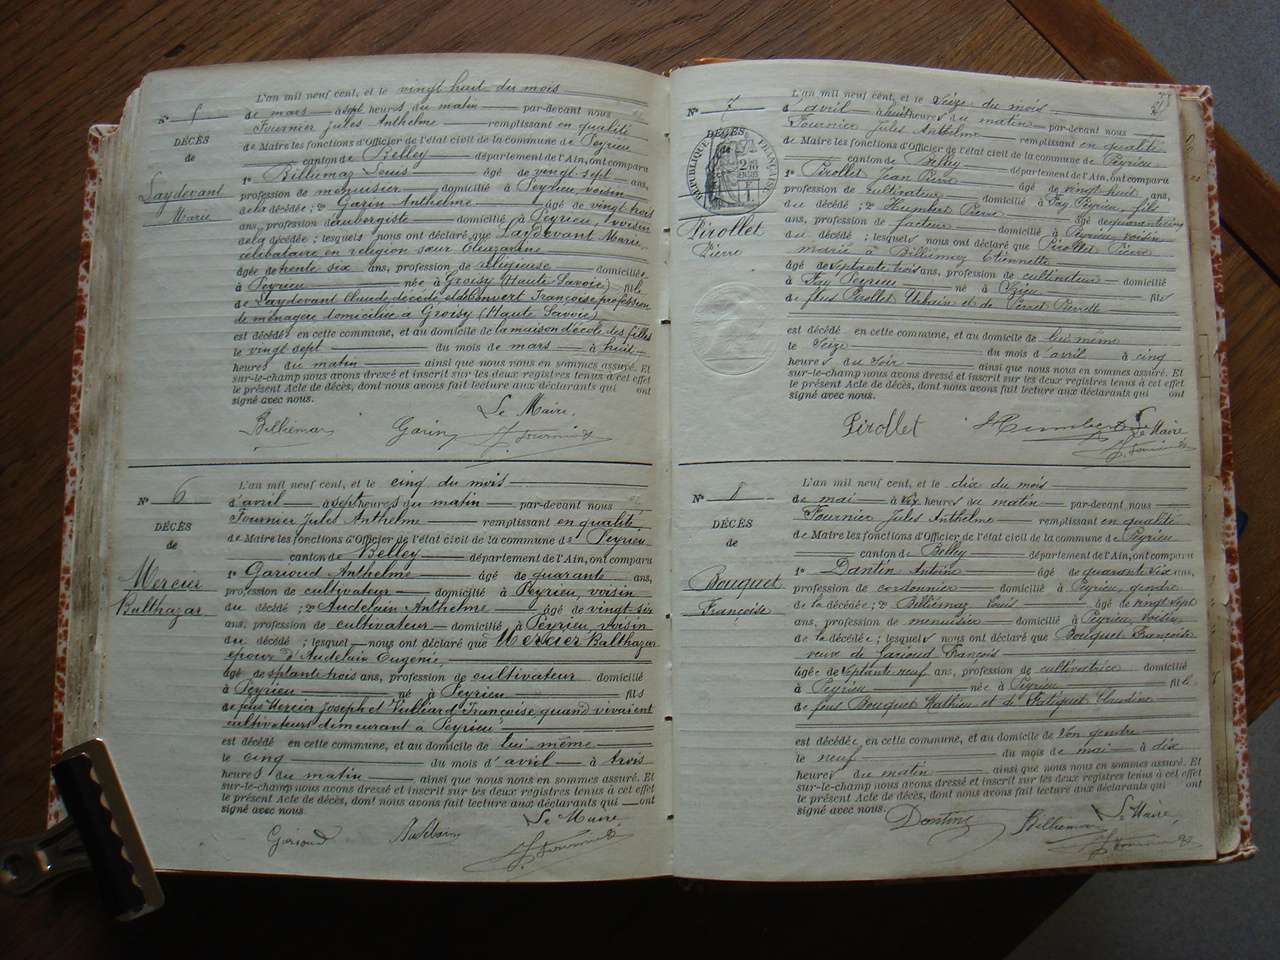 L'an mil neuf cent, et le vingt huit du mois
N° 5 de mars à sept heures du matin par-devant nous
Fournier Jules Anthelme remplissant en qualité
DÉCÈS de Maire les fonctions d'Officier de l'état civil de la commune de Peyrieu
de canton de Belley département de l'Ain, ont comparu
1° Billiemaz Louis âgé de vingt sept ans,
Laydevant profession de menuisier domicilié à Peyrieu, voisin
Marie de la décédée; 2° Garin Anthelme âgé de vingt trois
ans, profession d'aubergiste domicilié à Peyrieu, voisin
de la décédée; lesquels nous ont déclaré que Laydevant Marie,
célibataire en religion sœur
âgée de trente six ans, profession de religieuse domiciliée
à Peyrieu née à Groisy (Haute Savoie) fille
de Laydevant Claude décédé et de Convert Françoise profession
de ménagère domiciliée à Groisy (Haute Savoie)
est décédée en cette commune, et au domicile de la maison d'école des filles
le vingt sept du mois de mars à huit
heures du matin ainsi que nous nous en sommes assuré. Et
sur-le-champ nous avons dressé et inscrit sur les deux registres tenus à cet effet
le présent Acte de décès, dont nous avons fait lecture aux déclarants qui ont
signé avec nous.
Le Maire,
Billiemaz Garin J. Fournier
L'an mil neuf cent, et le cinq du mois
N° 6 d'avril à sept heures du matin par-devant nous
Fournier Jules Anthelme remplissant en qualité
DÉCÈS de Maire les fonctions d'Officier de l'état civil de la commune de Peyrieu
de canton de Belley département de l'Ain, ont comparu
1° Garioud Anthelme âgé de quarante ans,
Mercier profession de cultivateur domicilié à Peyrieu, voisin
Balthazar du décédé; 2° Audelain Anthelme âgé de vingt six
ans, profession de cultivateur domicilié à Peyrieu, voisin
du décédé; lesquels nous ont déclaré que Mercier Balthazar
époux d'Audelain Eugénie,
âgé de septante trois ans, profession de cultivateur domicilié
à Peyrieu né à Peyrieu fils
de feus Mercier Joseph et Françoise, quand vivaient
cultivateurs demeurant à Peyrieu
est décédé en cette commune, et au domicile de lui même
le cinq du mois d'avril à trois
heures du matin ainsi que nous nous en sommes assuré. Et
sur-le-champ nous avons dressé et inscrit sur les deux registres tenus à cet effet
le présent Acte de décès, dont nous avons fait lecture aux déclarants qui ont
signé avec nous.
Le Maire,
Garioud Audelain J. Fournier
L'an mil neuf cent, et le seize du mois
N° 7 d'avril à huit heures du matin par-devant nous
Fournier Jules Anthelme remplissant en qualité
DÉCÈS de Maire les fonctions d'Officier de l'état civil de la commune de Peyrieu
de canton de Belley département de l'Ain, ont comparu
RÉPUBLIQUE FRANÇAISE
1° Pirollet Jean Pierre âgé de vingt huit ans,
profession de cultivateur domicilié à Fay Peyrieu, fils
du décédé; 2° Humbert Pierre âgé de quarante cinq
ans, profession de facteur domicilié à Peyrieu, voisin
Pirollet du décédé; lesquels nous ont déclaré que Pirollet Pierre
Pierre marié à Billiemaz Etiennette
âgé de septante trois ans, profession de cultivateur domicilié
à Fay Peyrieu né à fils
de feus Pirollet Urbain et de Pierrette
est décédé en cette commune, et au domicile de lui même
le seize du mois d'avril à cinq
heures du soir ainsi que nous nous en sommes assuré. Et
sur-le-champ nous avons dressé et inscrit sur les deux registres tenus à cet effet
le présent Acte de décès, dont nous avons fait lecture aux déclarants qui ont
signé avec nous.
Pirollet Humbert Le Maire
J. Fournier
L'an mil neuf cent, et le dix du mois
N° 8 de mai à six heures du matin par-devant nous
Fournier Jules Anthelme remplissant en qualité
DÉCÈS de Maire les fonctions d'Officier de l'état civil de la commune de Peyrieu
de canton de Belley département de l'Ain, ont comparu
1° Dantin Antoine âgé de quarante six ans,
Bouquet profession de cordonnier domicilié à Peyrieu, gendre
Françoise de la décédée; 2° Billiemaz Louis âgé de vingt sept
ans, profession de menuisier domicilié à Peyrieu, voisin
de la décédée; lesquels nous ont déclaré que Bouquet Françoise
veuve de Garioud François
âgée de septante neuf ans, profession de cultivatrice domiciliée
à Peyrieu née à Peyrieu fille
de feus Bouquet Mathieu et d' Claudine
est décédée en cette commune, et au domicile de son gendre
le neuf du mois de mai à dix
heures du matin ainsi que nous nous en sommes assuré. Et
sur-le-champ nous avons dressé et inscrit sur les deux registres tenus à cet effet
le présent Acte de décès, dont nous avons fait lecture aux déclarants qui ont
signé avec nous.
Dantin Billiemaz Le Maire,
J. Fournier